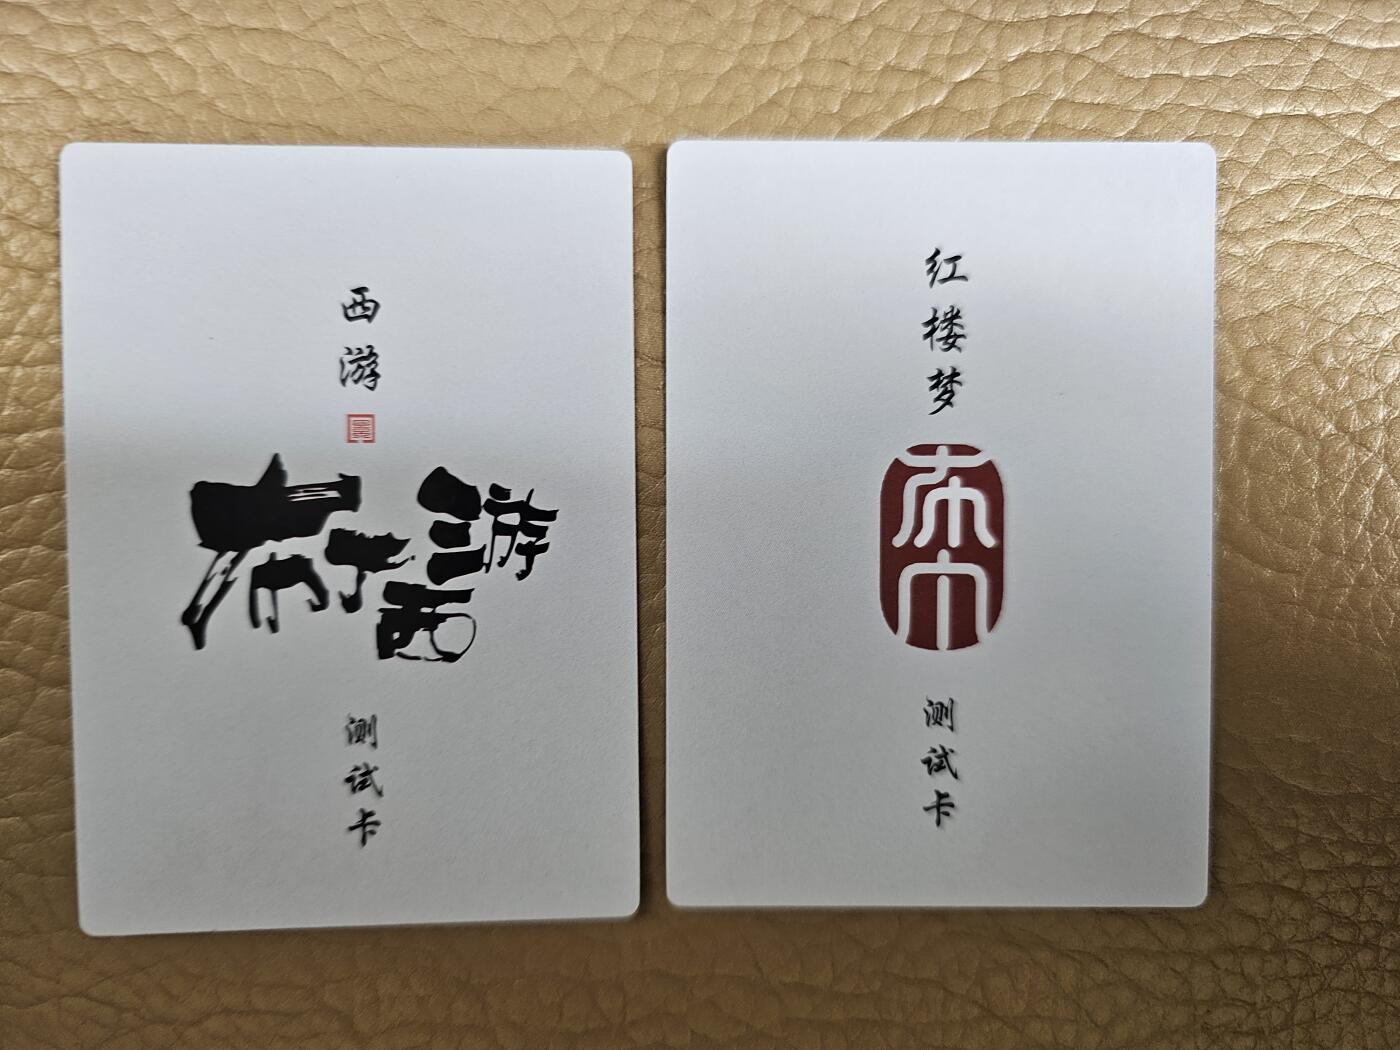 西游
游
西
测试卡
红楼梦
测试卡